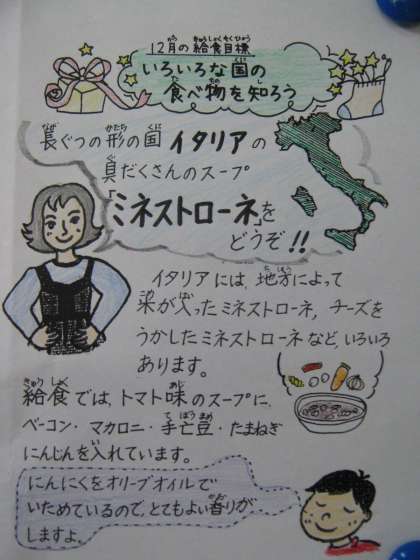 12月の給食目標
いろいろな国の
食べ物を知ろう
長ぐつの形の国 イタリアの
具だくさんのスープ
「ミネストローネ」を
どうぞ!!
イタリアには、地方によって
米が入ったミネストローネ, チーズを
うかしたミネストローネなど、いろいろ
あります。
給食では、トマト味のスープに、
ベーコン・マカロニ・手亡豆・たまねぎ
にんじんを入れています。
にんにくをオリーブオイルで
いためているので、とてもよい香りが
しますよ。